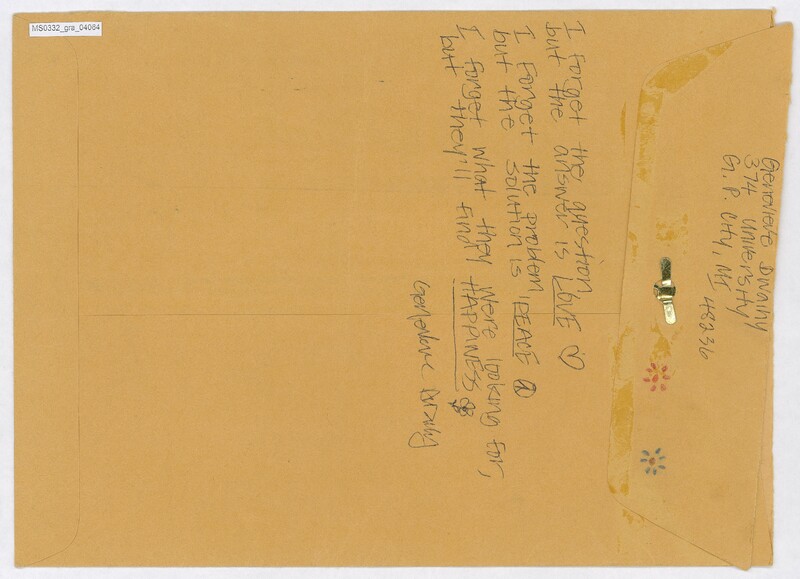 MS0332_gra_04064
Genevieve Dwaihy
374 University
G. P. City, MI
48236
I forget the question
but the answer is LOVE ♡
I Forget the problem,
but the solution is PEACE ☮
I forget what they were looking for,
but they'll find HAPPINESS
Genevieve Dwaihy